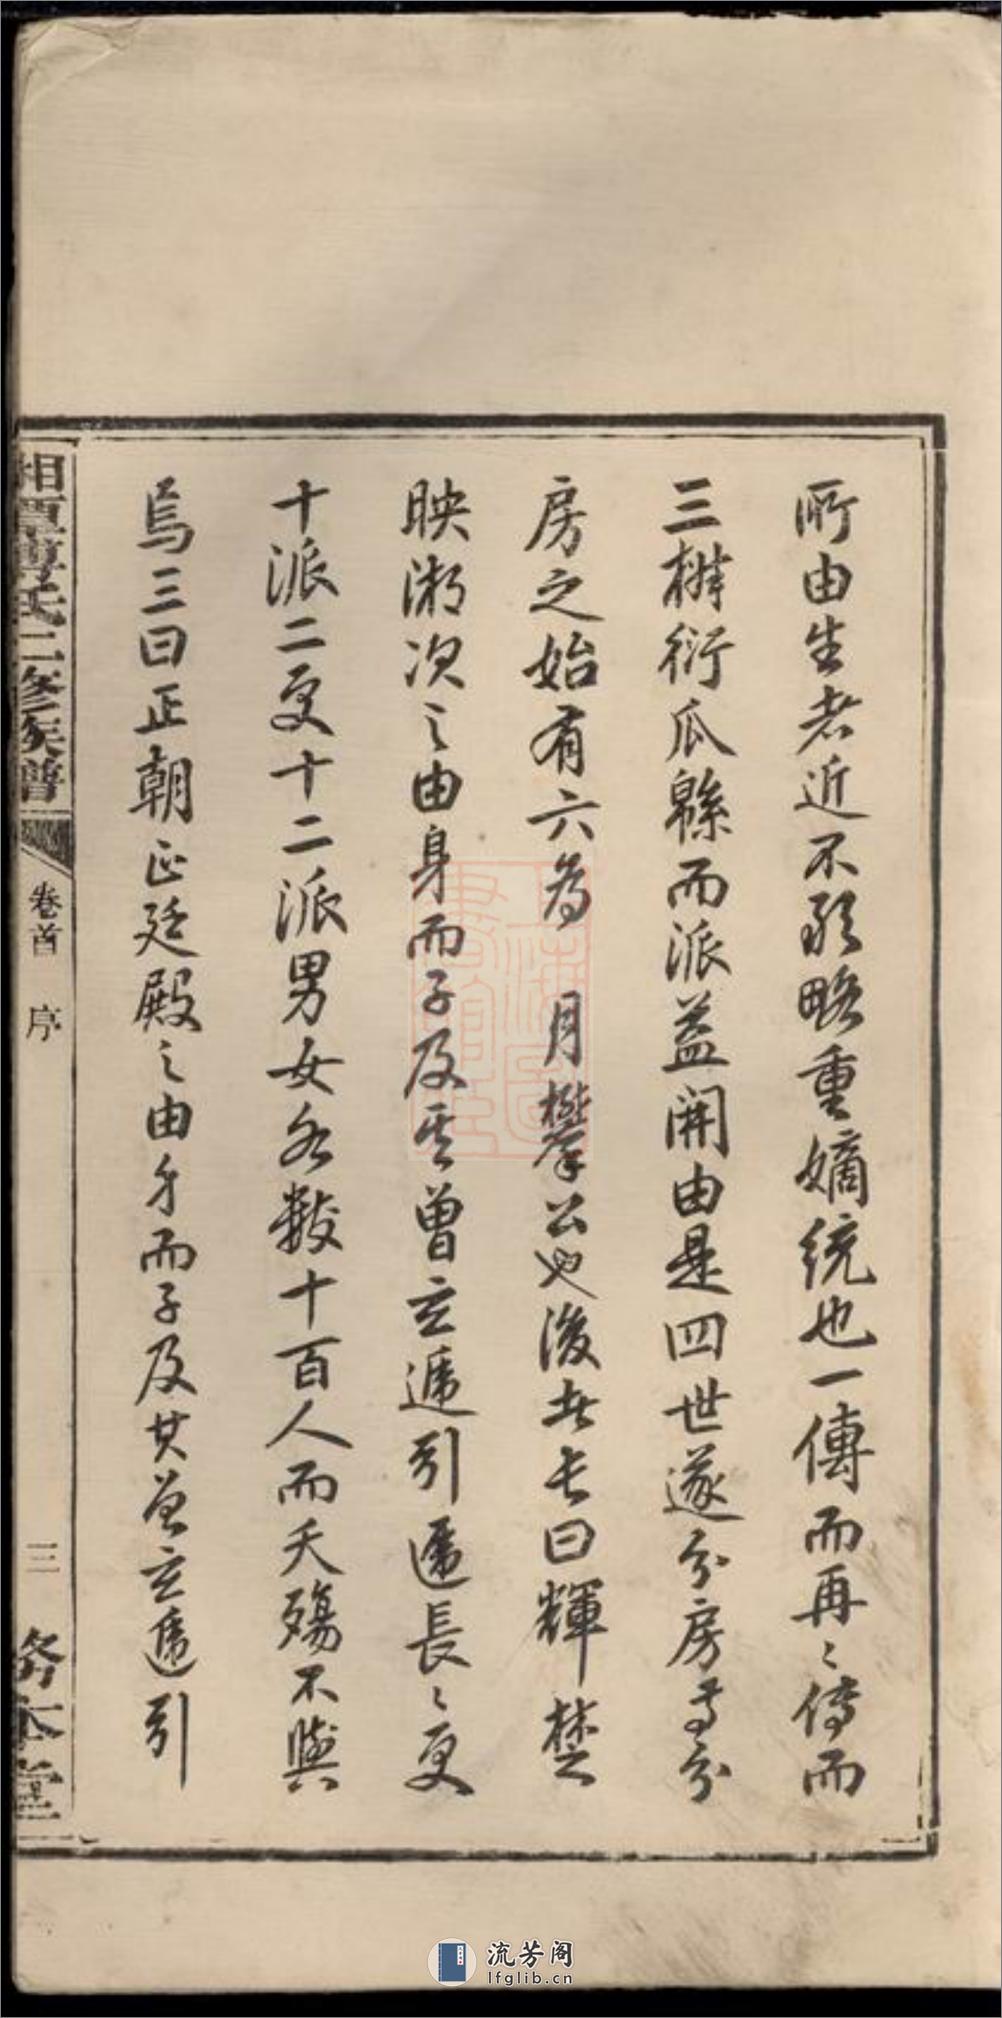 所由生者近不敢略重嫡統也一傳而再〻傳而
三椒衍瓜緜而派益開由是四世遂分房焉分
房之始有六爲 月攀公也後者長曰輝楚
映湘次之由身而子及其曾玄遞引遞長〻更
十派二更十二派男女各数十百人而夭殤不與
焉三曰正朝正廷殿之由身而子及其曾玄遞引
相潭 氏二修族譜 卷首 序 三 務本堂
流芳阁
lfglib.cn